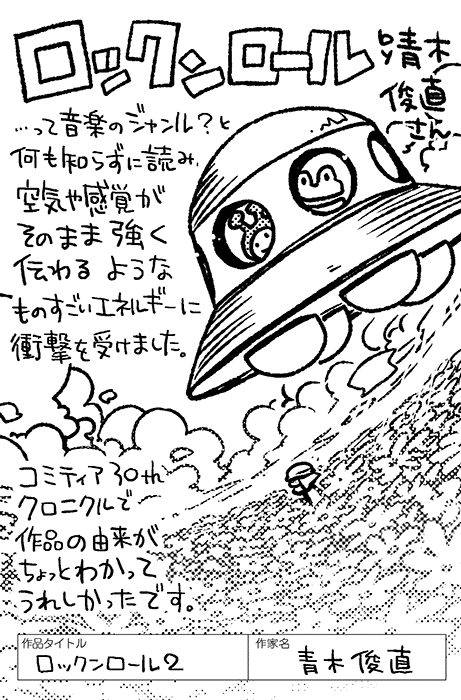 ロックンロール
by青木
俊直
さん
…って音楽のジャンル?と
何も知らずに読み、
空気や感覚が
そのまま強く
伝わるような
ものすごいエネルギーに
衝撃を受けました。
コミティア30th
クロニクルで
作品の由来が
ちょっとわかって
うれしかったです。
作品タイトル
ロックンロール2
作家名
青木俊直